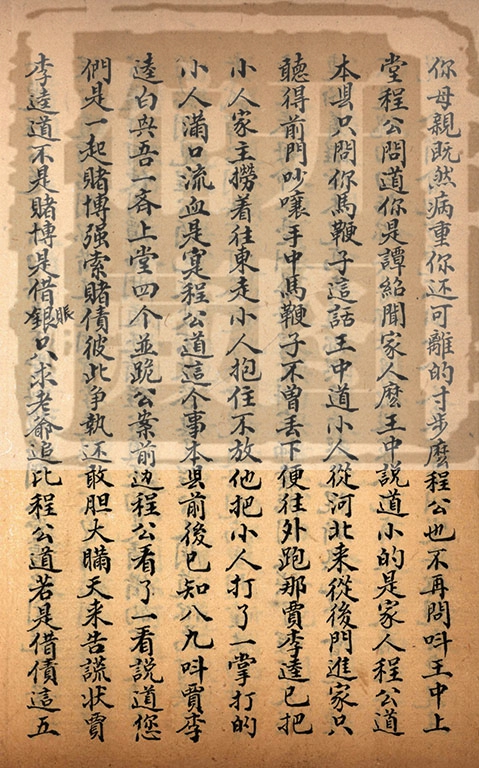 你母親既然病重你还可離的寸步麽程公也不再問呌王中上
堂程公問道你是譚紹聞家人麽王中說道小的是家人程公道
本县只問你馬鞭子這話王中道小人從河北来從後門進家只
聽得前門吵嚷手中馬鞭子不曽丢下便往外跑那賈李逵已把
小人家主撈着往東走小人抱住不放他把小人打了一掌打的
小人滿口流血是寔程公道這个事本县前後已知八九呌賈李
逵白與吾一斉上堂四个並跪公案前边程公看了一看說道您
們是一起賭博强索賭債彼此争執还敢胆大瞞天来告謊狀賈
李逵道不是賭博是借銀賬只求老爺追比程公道若是借債這五